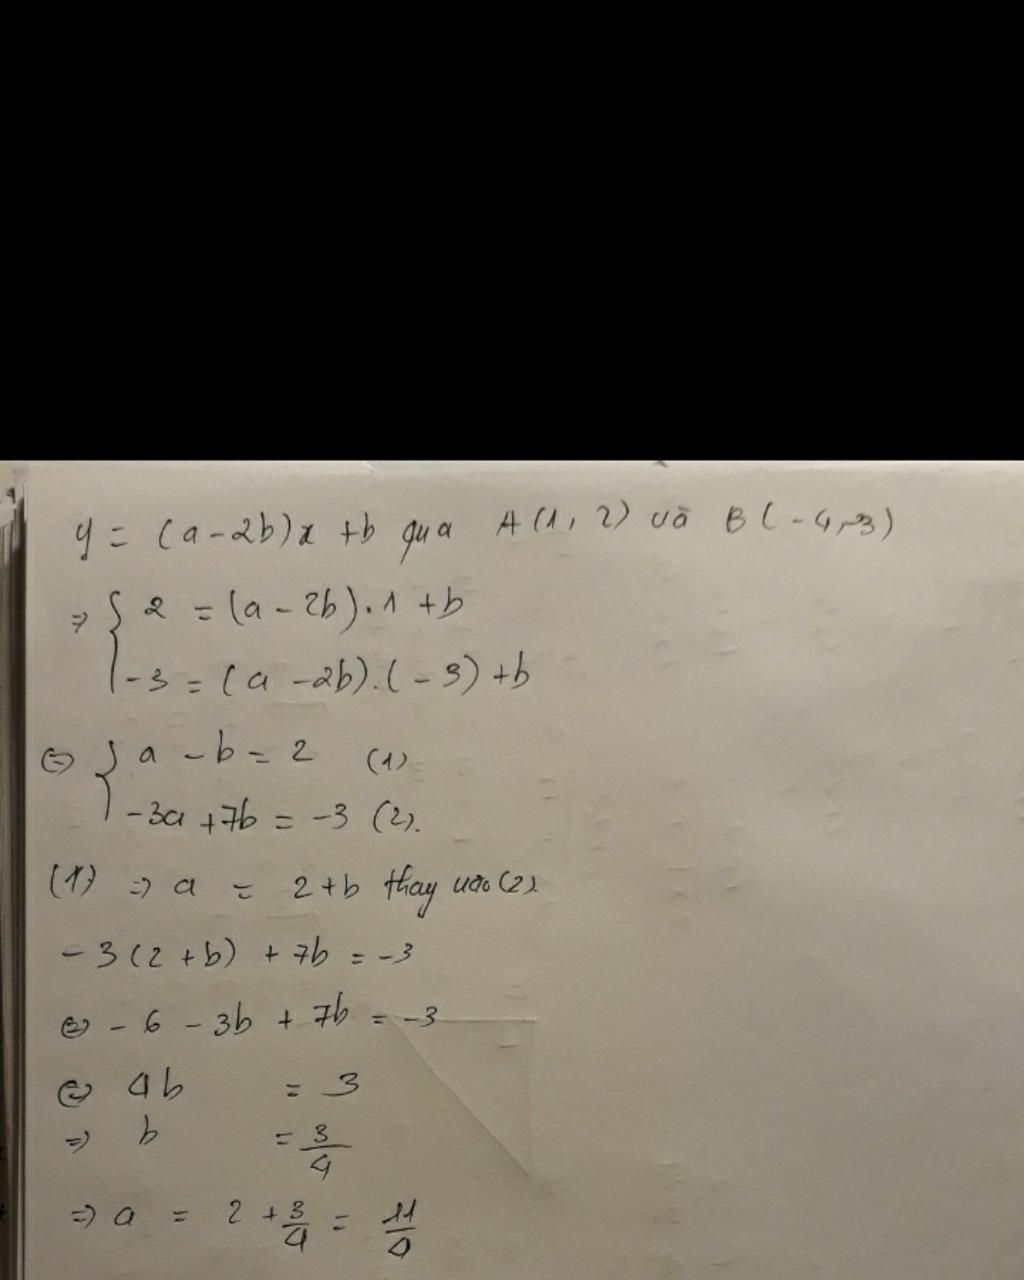 y = (a-2b)x + b qua A(1, 2) và B(-4,-3)
⇒ { 2 = (a - 2b).1 + b
-3 = (a - 2b).(-3) + b
⇔ { a - b = 2 (1)
-3a + 7b = -3 (2).
(1) ⇒ a = 2 + b thay vào (2)
-3(2 + b) + 7b = -3
⇔ -6 - 3b + 7b = -3
⇔ 4b = 3
⇒ b = 3/4
⇒ a = 2 + 3/4 = 11/4